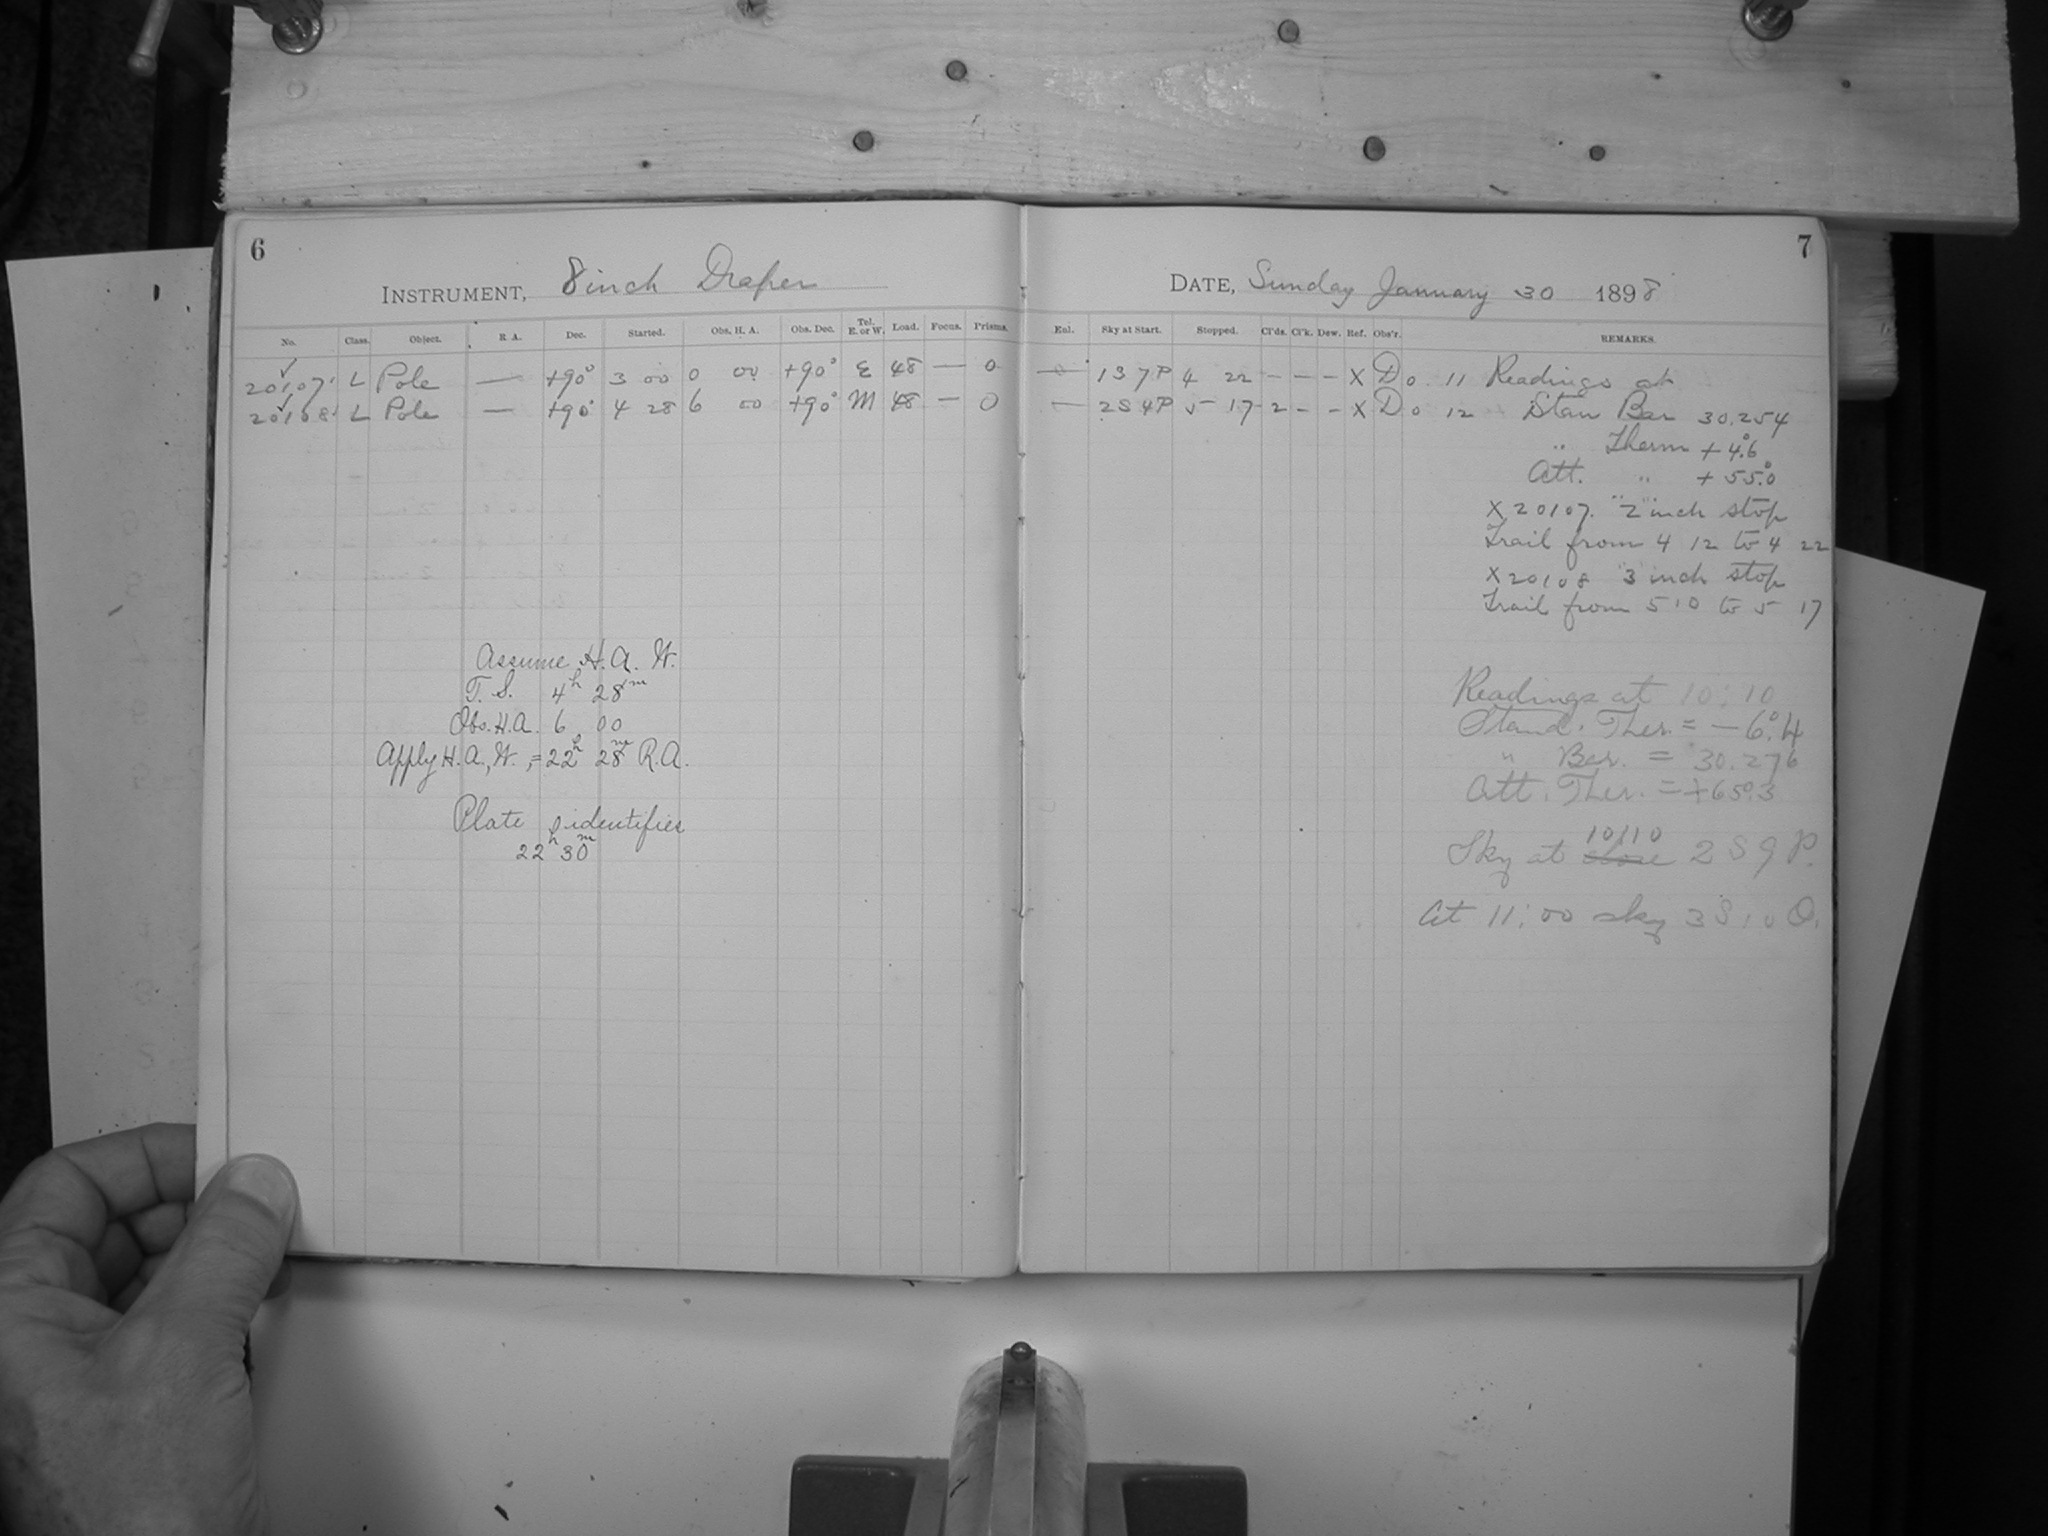 6
INSTRUMENT, 8 inch Draper
No. Class. Object. R A. Dec. Started. Obs. H. A. Obs. Dec. Tel. E. or W. Load. Focus. Prisms.
20107 L Pole — +90° 3 00 0 00 +90° E 48 — 0
20108 L Pole — +90° 4 28 6 00 +90° M 48 — 0
Assume H.A. W.
T.S. 4h 28m
Obs. H.A. 6 00
Apply H.A., W., = 22h 28m R.A.
Plate identifies
22h 30m
7
DATE, Sunday January 30 1898
Enl. Sky at Start. Stopped. Cl'ds. Cl'k. Dew. Ref. Obs'r. REMARKS.
— 1S7P 4 22 - - - X D 0 11 Readings at
— 2S4P 5 17 2 - - X D 0 12 Stan Bar 30.254
" Therm +4.°6
Att. " +55.°0
X 20107 "2" inch stop
Trail from 4 12 to 4 22
X 20108 "3 inch stop
Trail from 5 10 to 5 17
Readings at 10:10
Stand. Ther. = -6.°4
" Bar. = 30.276
Att. Ther. = +65°.3
Sky at close 10/10 2S9P.
At 11:00 sky 3S10 O.